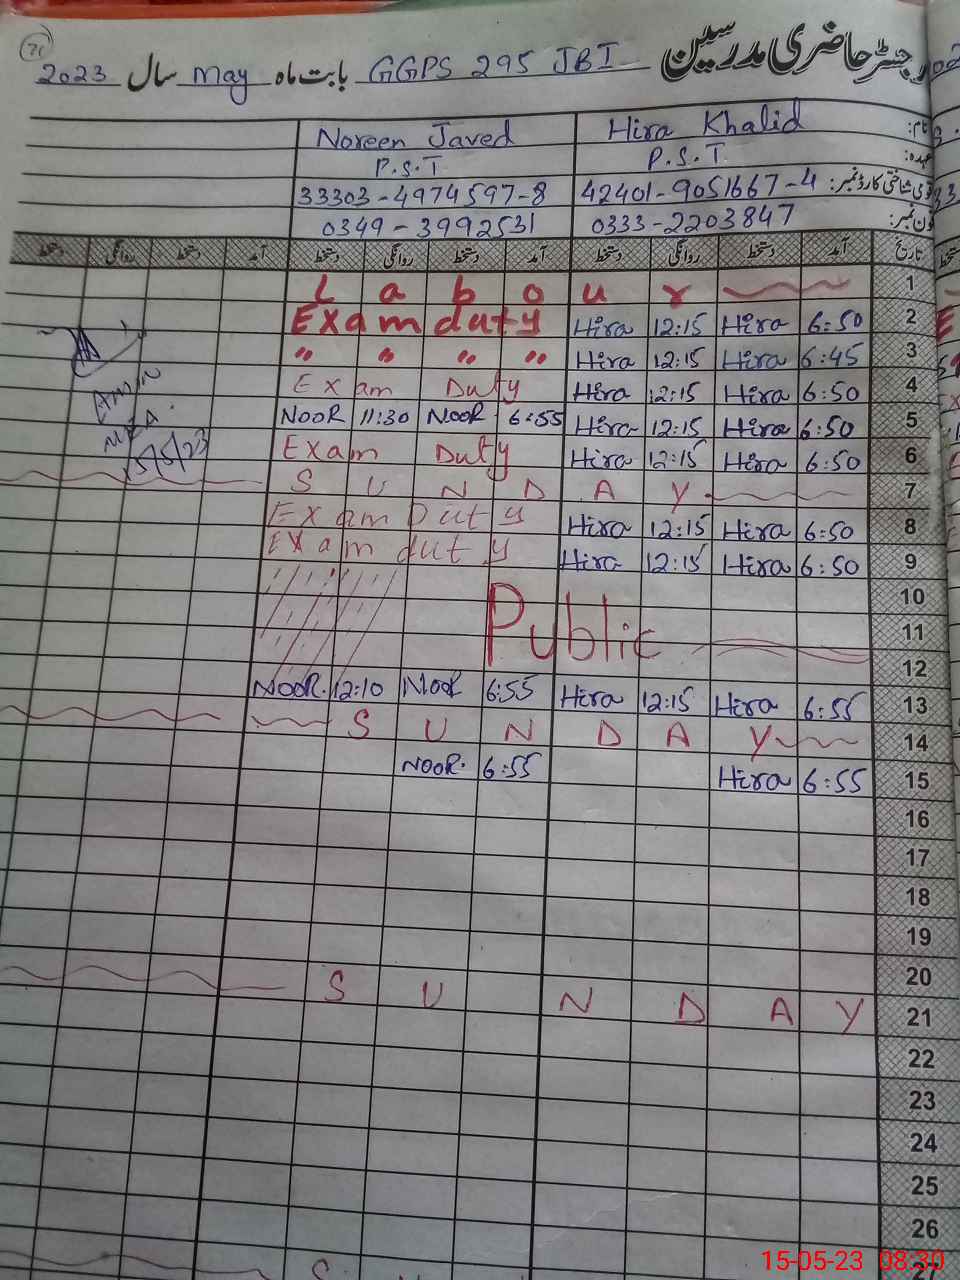 رجسٹر حاضری مدرسین GGPS 295 JBI بابت ماہ May سال 2023
نام: Hira Khalid Noreen Javed
عہدہ: P.S.T P.S.T
قومی شناختی کارڈ نمبر: 42401-9051667-4 33303-4974597-8
فون نمبر: 0333-2203847 0349-3992531
تاریخ آمد دستخط روانگی دستخط آمد دستخط روانگی دستخط آمد دستخط روانگی دستخط
1 Labour
2 6:50 Hira 12:15 Hira Exam duty
3 6:45 Hira 12:15 Hira " " " "
4 6:50 Hira 12:15 Hira Exam Duty
5 6:50 Hira 12:15 Hira 6:55 NOOR 11:30 NOOR
6 6:50 Hira 12:15 Hira Exam Duty
7 SUNDAY
8 6:50 Hira 12:15 Hira Exam Duty
9 6:50 Hira 12:15 Hira Exam duty
10
11 Public
12
13 6:55 Hira 12:15 Hira 6:55 NOOR 12:10 NOOR.
14 SUNDAY
15 6:55 Hira 6:55 NOOR.
16
17
18
19
20
21 SUNDAY
22
23
24
25
26
27
15/5/23
15-05-23 08:30